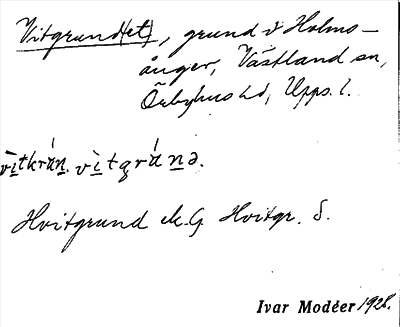 Vitgrund(et), grund v Holms-
ånger, Västland sn,
Örbyhus hd, Upps. l.
vìtkrán. vìtgránə.
Hvitgrund ek. G Hvitgr. S.
Ivar Modéer 1928.